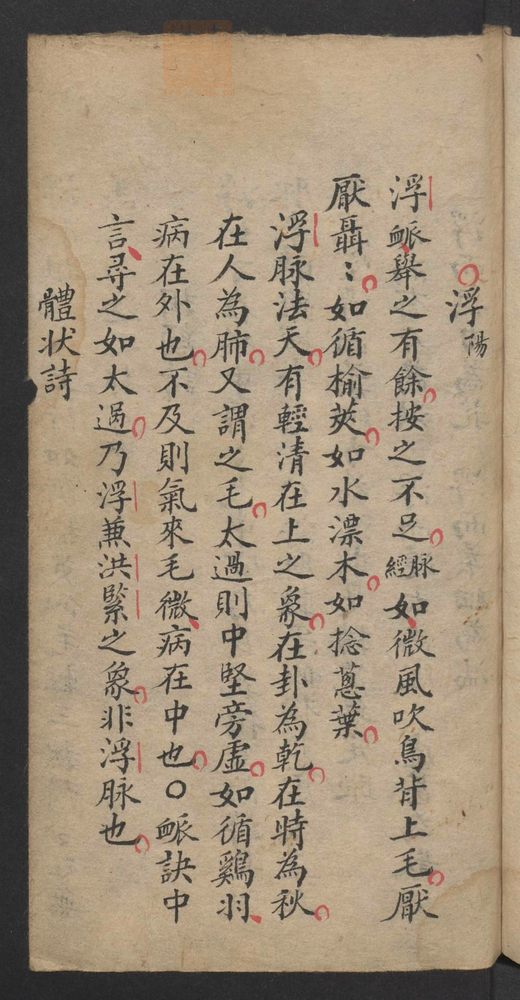 浮陽
浮脈舉之有餘按之不足脉經如微風吹鳥背上毛厭
厭聶〻如循榆莢如水漂木如捻蔥葉
浮脉法天有輕清在上之象在卦為乾在時為秋
在人為肺又謂之毛太過則中堅旁虛如循鷄羽
病在外也不及則氣來毛微病在中也○脈訣中
言尋之如太過乃浮兼洪緊之象非浮脉也
體状詩